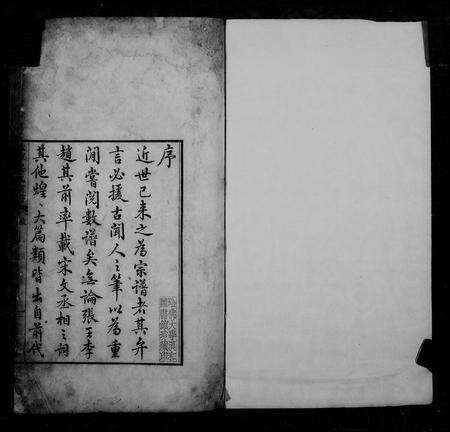 序
近世已來之為宗譜者其弁
言必援古聞人之筆以為重
間嘗閱數譜矣無論張王李
趙其前率載宋文丞相之詞
其他煌〻大篇類皆出自前代